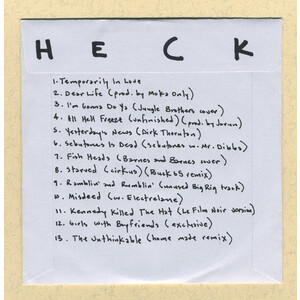 HECK
1. Temporarily In Love
2. Dear Life (prod. by Moka Only)
3. I'm Gonna Do Ya (Jungle Brothers cover)
4. All Hell Freeze (unfinished) (prod. by Jorun)
5. Yesterdays News (Dirk Thornton)
6. Sebutones Is Dead (sebutones w. Mr. Dibbs)
7. Fish Heads (Barnes and Barnes cover)
8. Starved (cirkus) (Buck 65 remix)
9. Ramblin' and Rumblin' (unused Big Rig track)
10. Misdeed (w. Electrelane)
11. Kennedy Killed The Hat (Le Film Noir version)
12. Girls with Boyfriends (exclusive)
13. The Unthinkable (home made remix)